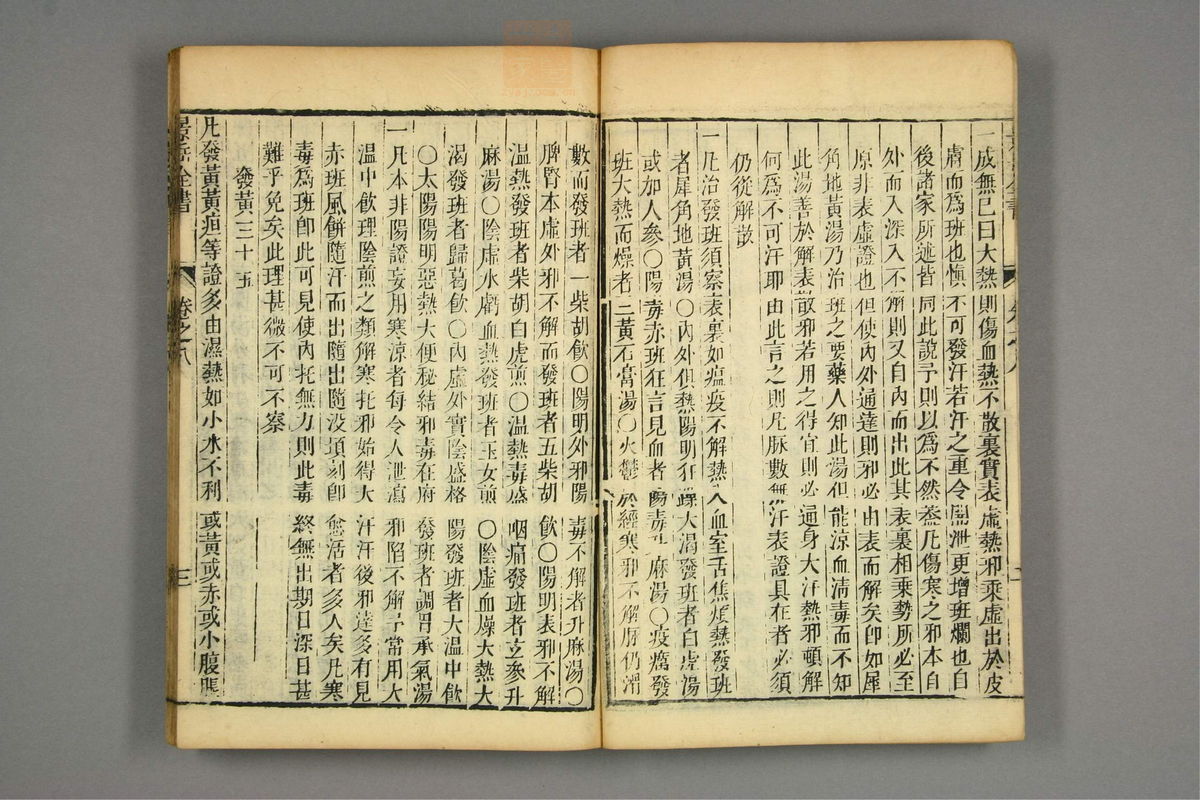 一成無己曰大熱則傷血熱不散裏實表虛熱邪乘虛出於皮
膚而為班也慎不可發汗若汗之重令開泄更增班爛也自
後諸家所述皆同此說予則以為不然葢凡傷寒之邪本自
外而入深入不解則又自內而出此其表裏相乘勢所必至
原非表虛證也但使內外通達則邪必由表而解矣卽如犀
角地黃湯乃治班之要藥人知此湯但能涼血清毒而不知
此湯善於解表散邪若用之得宜則必通身大汗熱邪頓解
何為不可汗耶由此言之則凡脉數無汗表證具在者必須
仍從解散
一凡治發班須察表裏如瘟疫不解熱入血室舌焦煩熱發班
者犀角地黃湯〇內外俱熱陽明狂躁大渴發班者白虎湯
或加人參〇陽毒赤班狂言見血者陽毒升麻湯〇疫癘發
班大熱而燥者三黃石膏湯〇火鬱於經寒邪不解脉仍滑
數而發班者一柴胡飲〇陽明外邪陽毒不解者升麻湯〇
脾腎本虛外邪不解而發班者五柴胡飲〇陽明表邪不解
溫熱發班者柴胡白虎煎〇溫熱毒盛咽痛發班者玄參升
麻湯〇陰虛水虧血熱發班者玉女煎〇陰虛血燥大熱大
渴發班者歸葛飲〇內虛外實陰盛格陽發班者大溫中飲
〇太陽陽明惡熱大便秘結邪毒在府發班者調胃承氣湯
一凡本非陽證妄用寒涼者每令人泄瀉邪陷不解予常用大
溫中飲理陰煎之類解寒托邪始得大汗汗後邪達多有見
赤班風餅隨汗而出隨出隨沒頃刻卽愈活者多人矣凡寒
毒為班卽此可見使內托無力則此毒終無出期日深日甚
難乎免矣此理甚微不可不察
發黃三十五
凡發黃黃疸等證多由濕熱如小水不利或黃或赤或小腹脹
景岳全書
卷之八
三